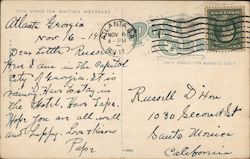 THIS SPACE FOR WRITING MESSAGES
Atlanta Georgia
Nov 6 - 19
Dear Little Russell
Here I am in the Capitol
City of Georgia. It is
the Hotel. Your Papa.
Hope you are all well
and happy.
Papa
ATLANTA
NOV 6
THIS SPACE FOR ADDRESS ONLY
Russell
1030 Second St
Santa Monica
California